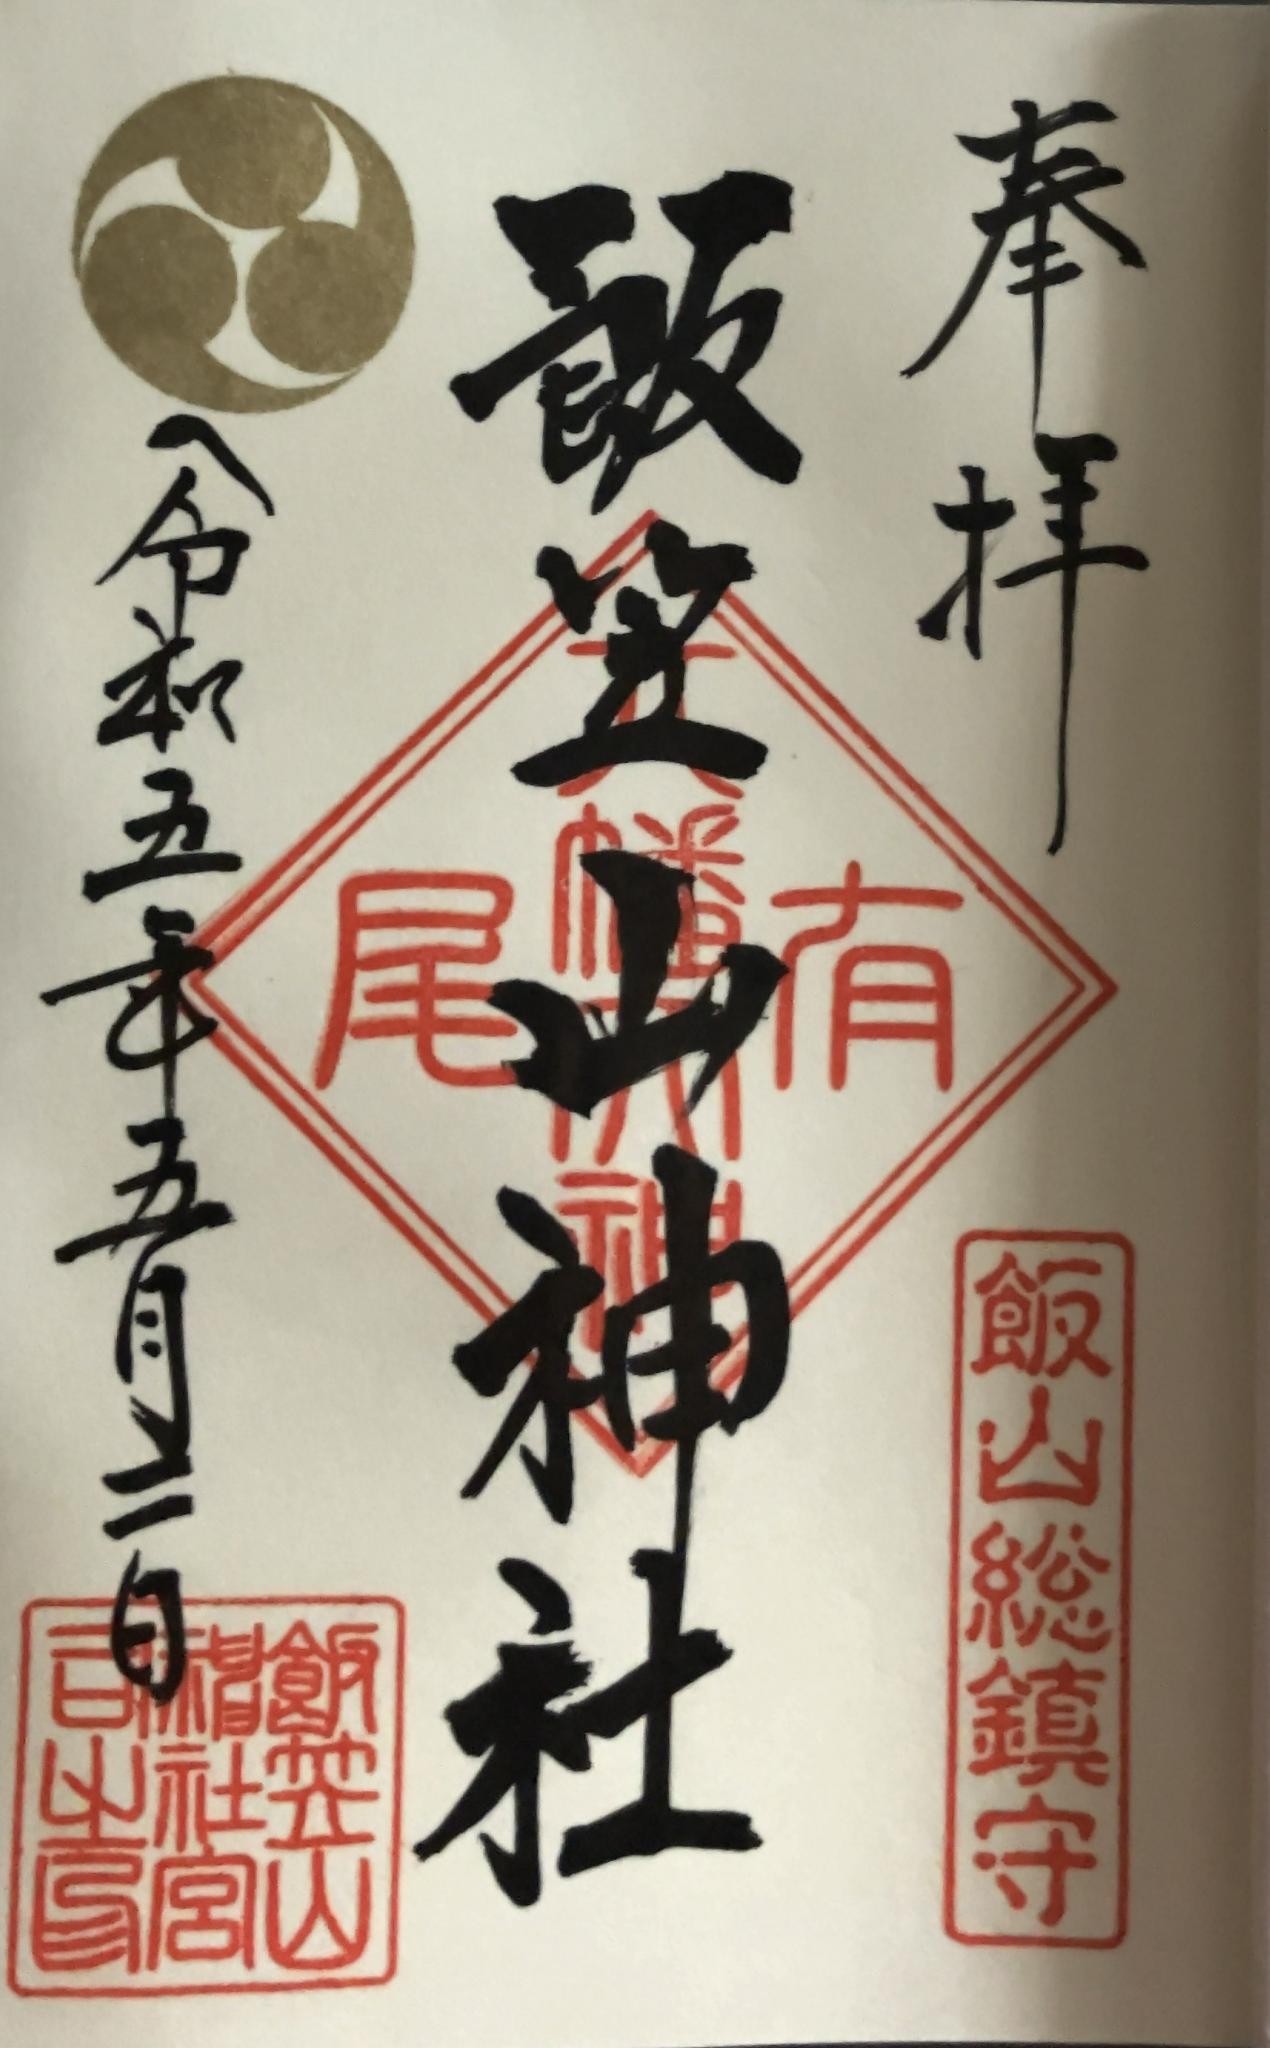 奉拝
飯山総鎮守
飯笠山神社
有
八幡大神
尾
令和五年五月二日
飯笠山
神社宮
司之印